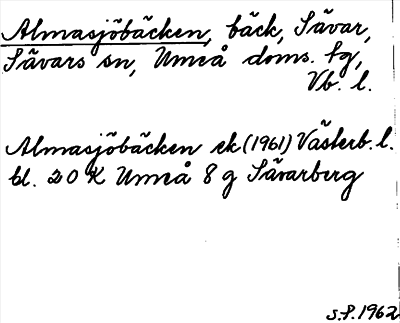 Almasjöbäcken, bäck, Sävar,
Sävars sn, Umeå doms. fg,
Vb. l.
Almasjöbäcken ek (1961) Västerb. l.
bl. 20 K Umeå 8 g Sävarberg
S.P. 1962